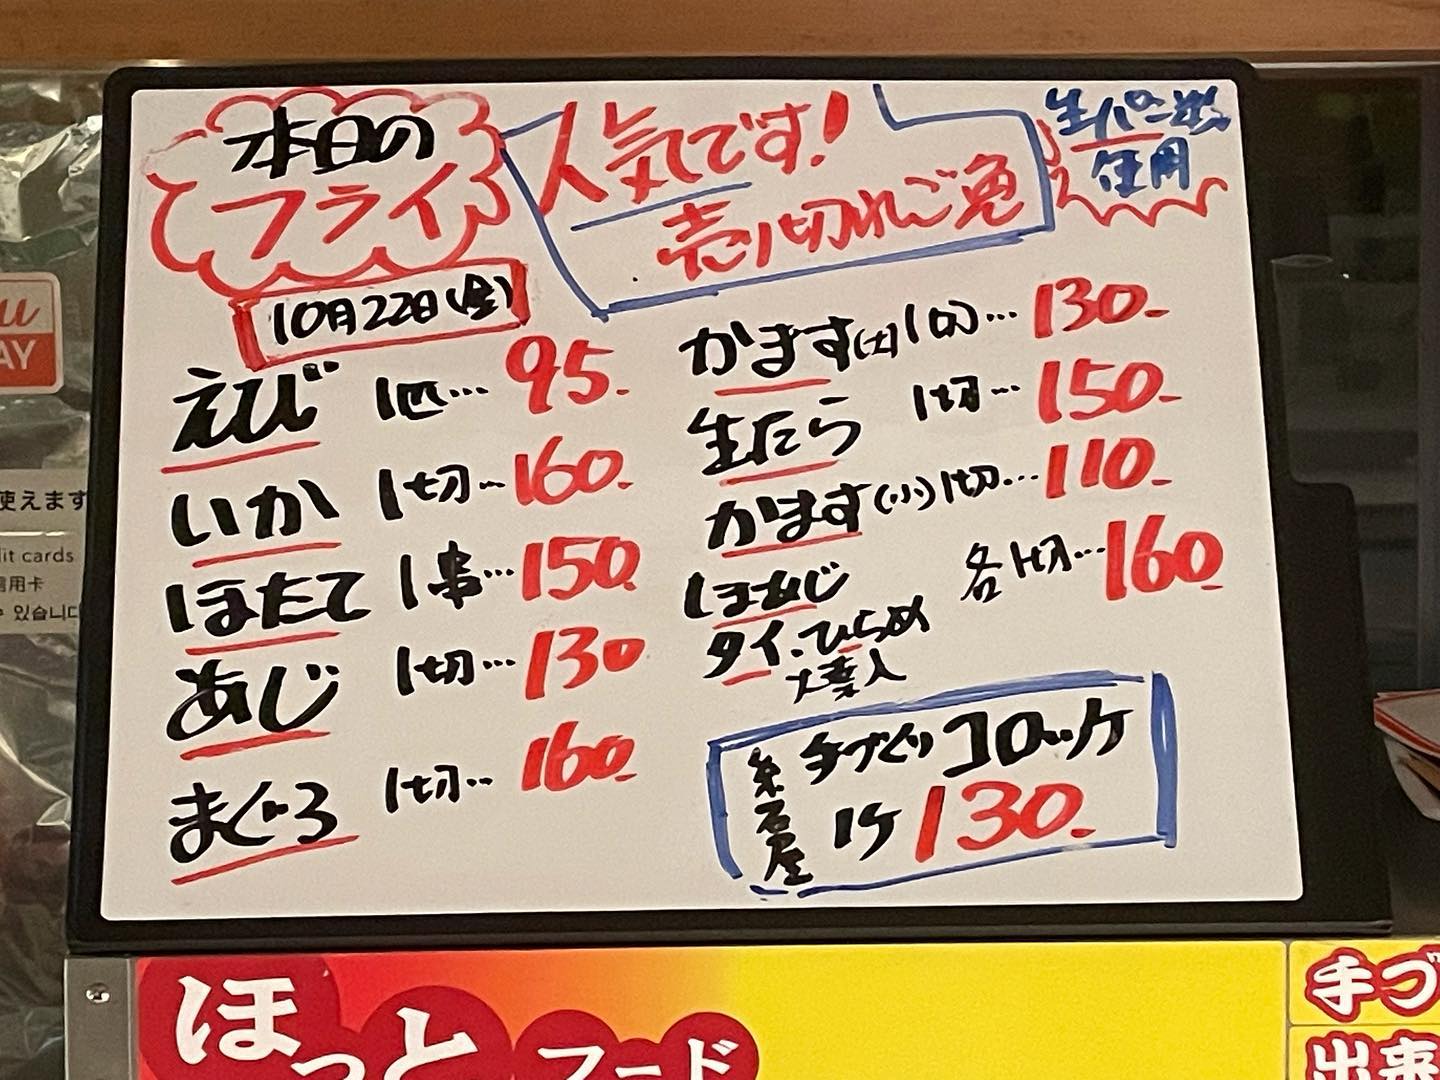 本日の
フライ
人気です!
売り切れご免
生パン粉
使用
10月22日(金)
えび 1匹… 95.
いか 1切… 160.
ほたて 1串… 150.
あじ 1切… 130
まぐろ 1切… 160.
かます(大)1切… 130.
生たら 1切… 150.
かます(小)1切… 110.
ほあじ
タイ、ひらめ
大葉入
各1切… 160.
手づくりコロッケ
1ケ 130.
ほっと
フード
手づ
出来
AY
使えます
dit cards
信用卡
수 있습니다